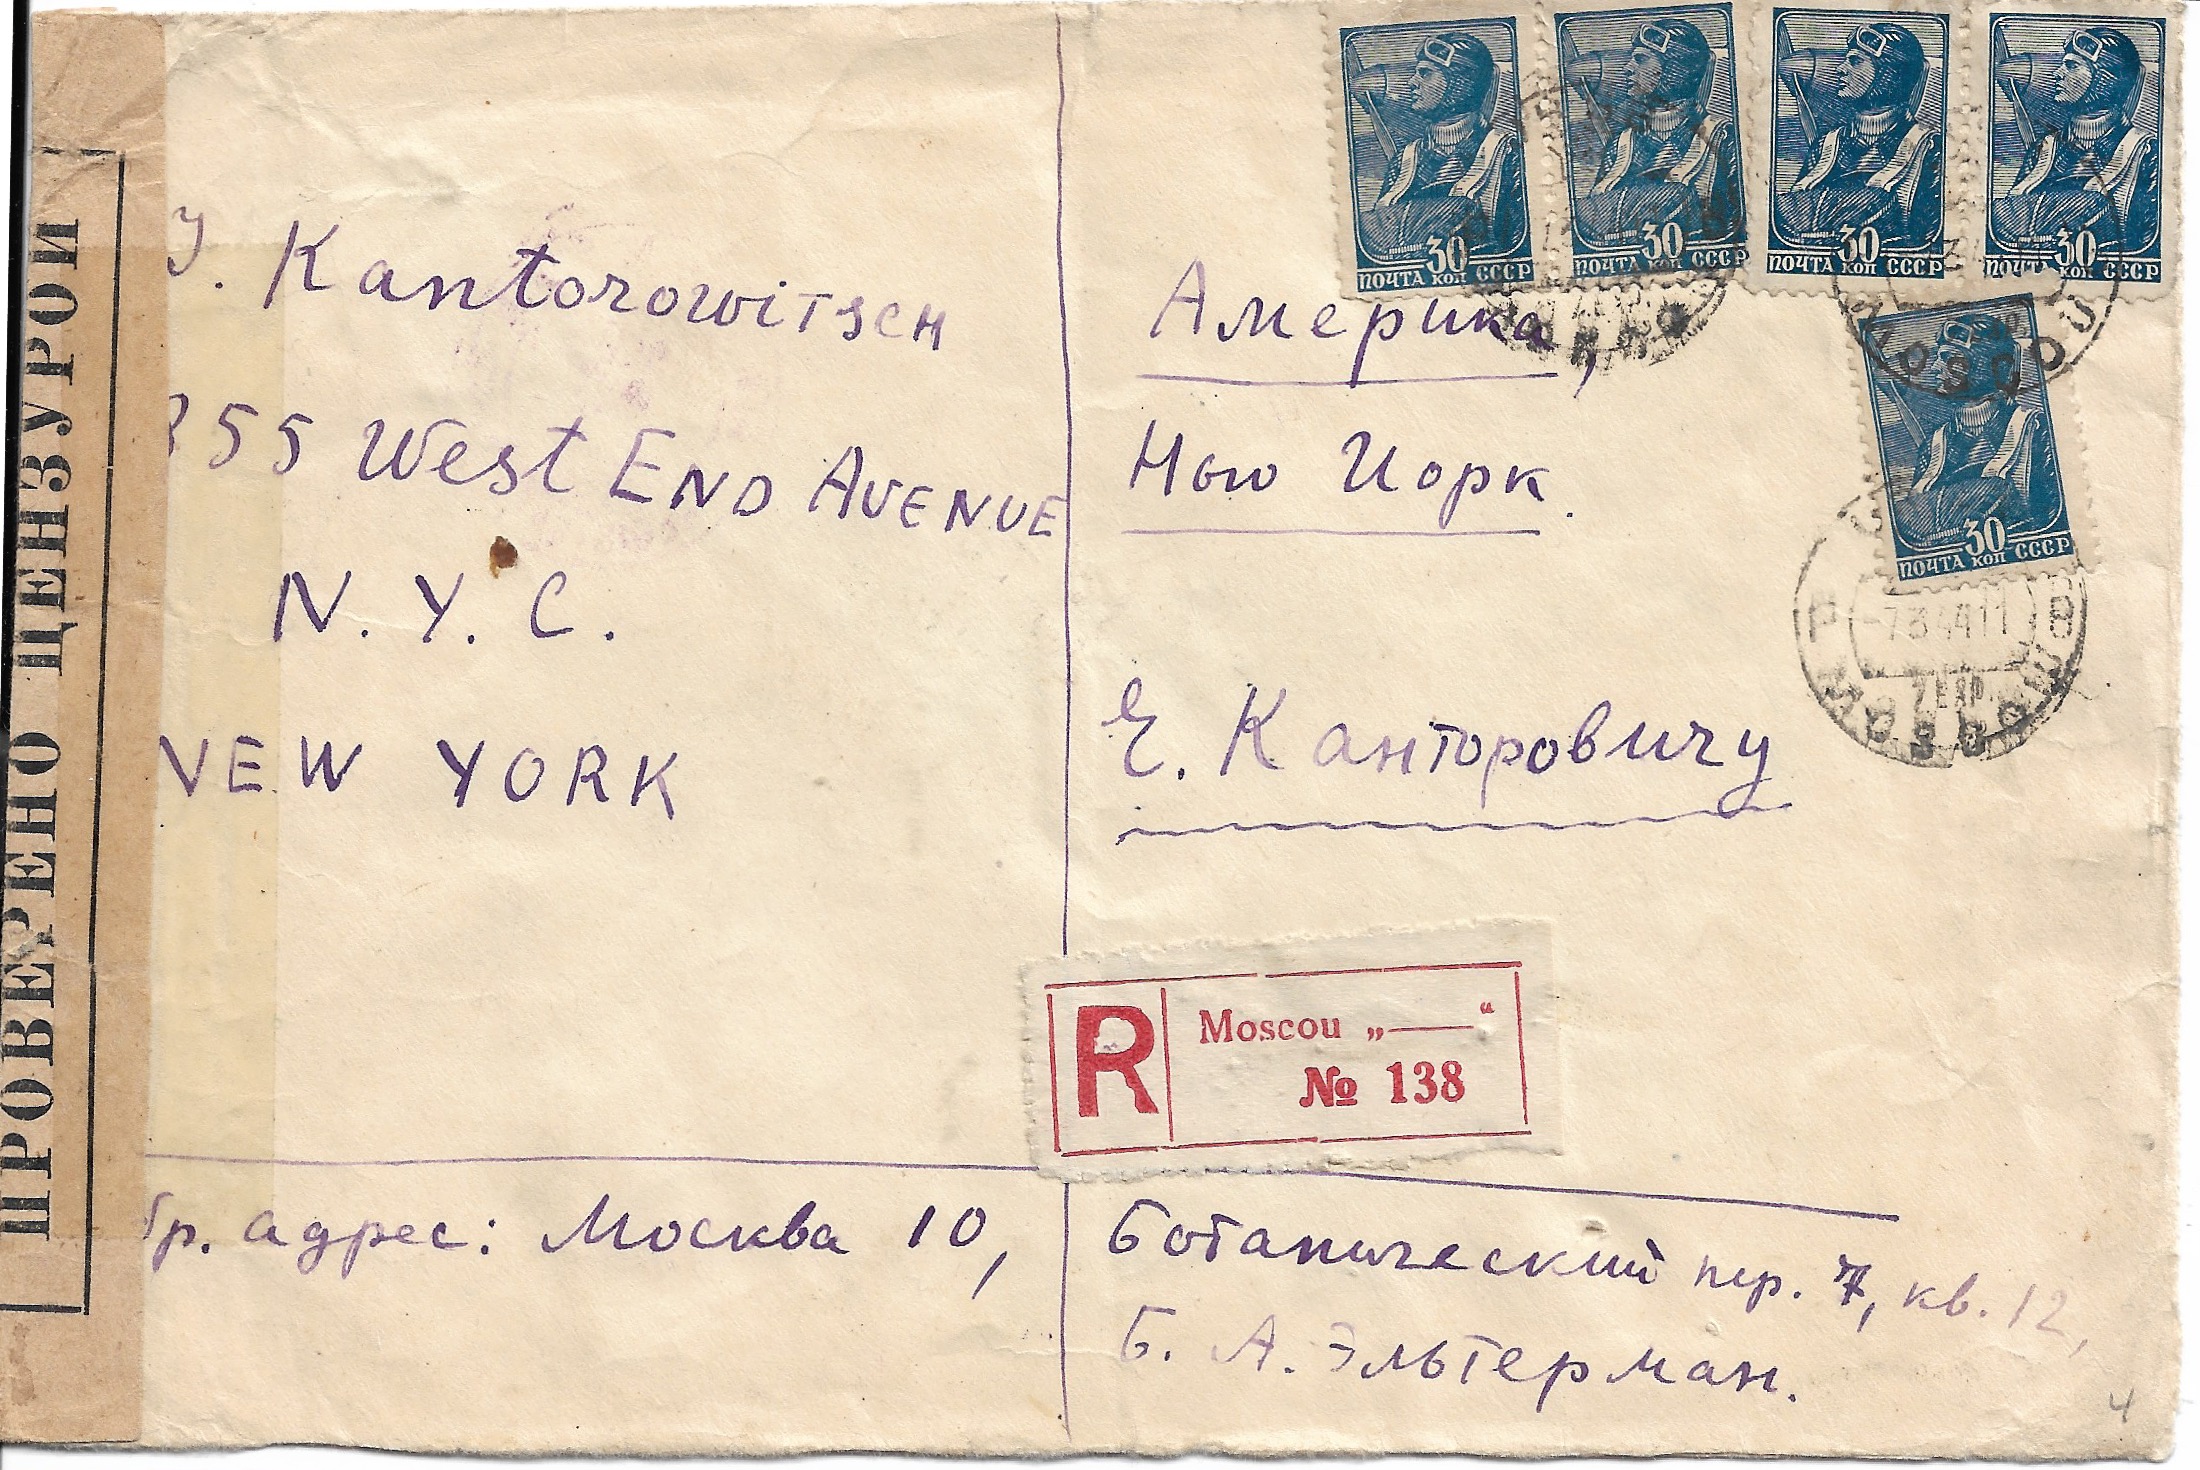 ПРОВЕРЕНО ЦЕНЗУРОЙ
30
ПОЧТА КОП СССР
30
ПОЧТА КОП СССР
30
ПОЧТА КОП СССР
30
ПОЧТА КОП СССР
30
ПОЧТА КОП СССР
Kantorowitsch
355 West END AVENUE
N. Y. C.
NEW YORK
Америка,
Нью Иорк.
Е. Канторовичу
MOSCOU
R
Moscou „——“
№ 138
бр. адрес: Москва 10,
Ботанический пер. 7, кв. 12,
Б. А. Эльтерман.
4